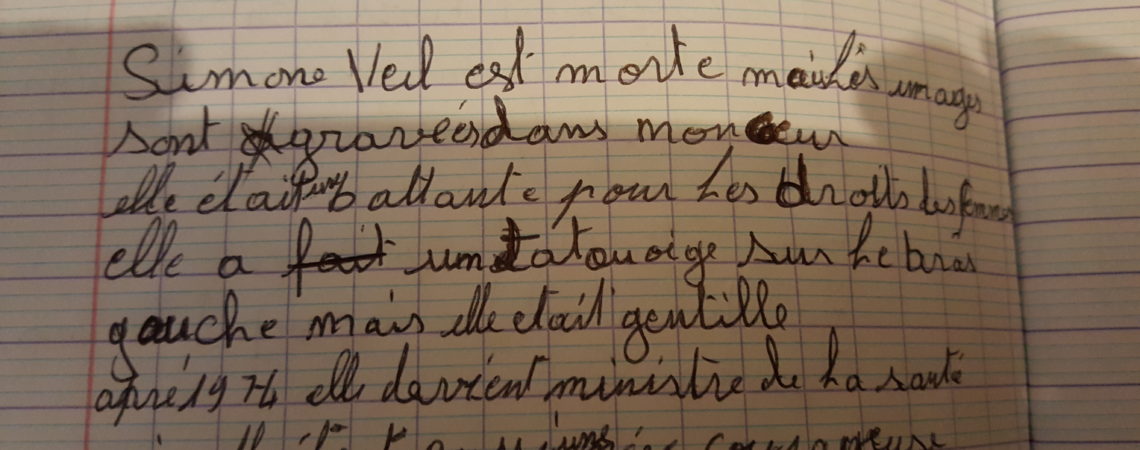 Simone Veil est morte mais les images
sont gravées dans mon cœur
elle était une battante pour les droits des femmes
elle a fait un tatouage sur le bras
gauche mais elle etait gentille
apré 1974 elle devient ministre de la santé
courageuse